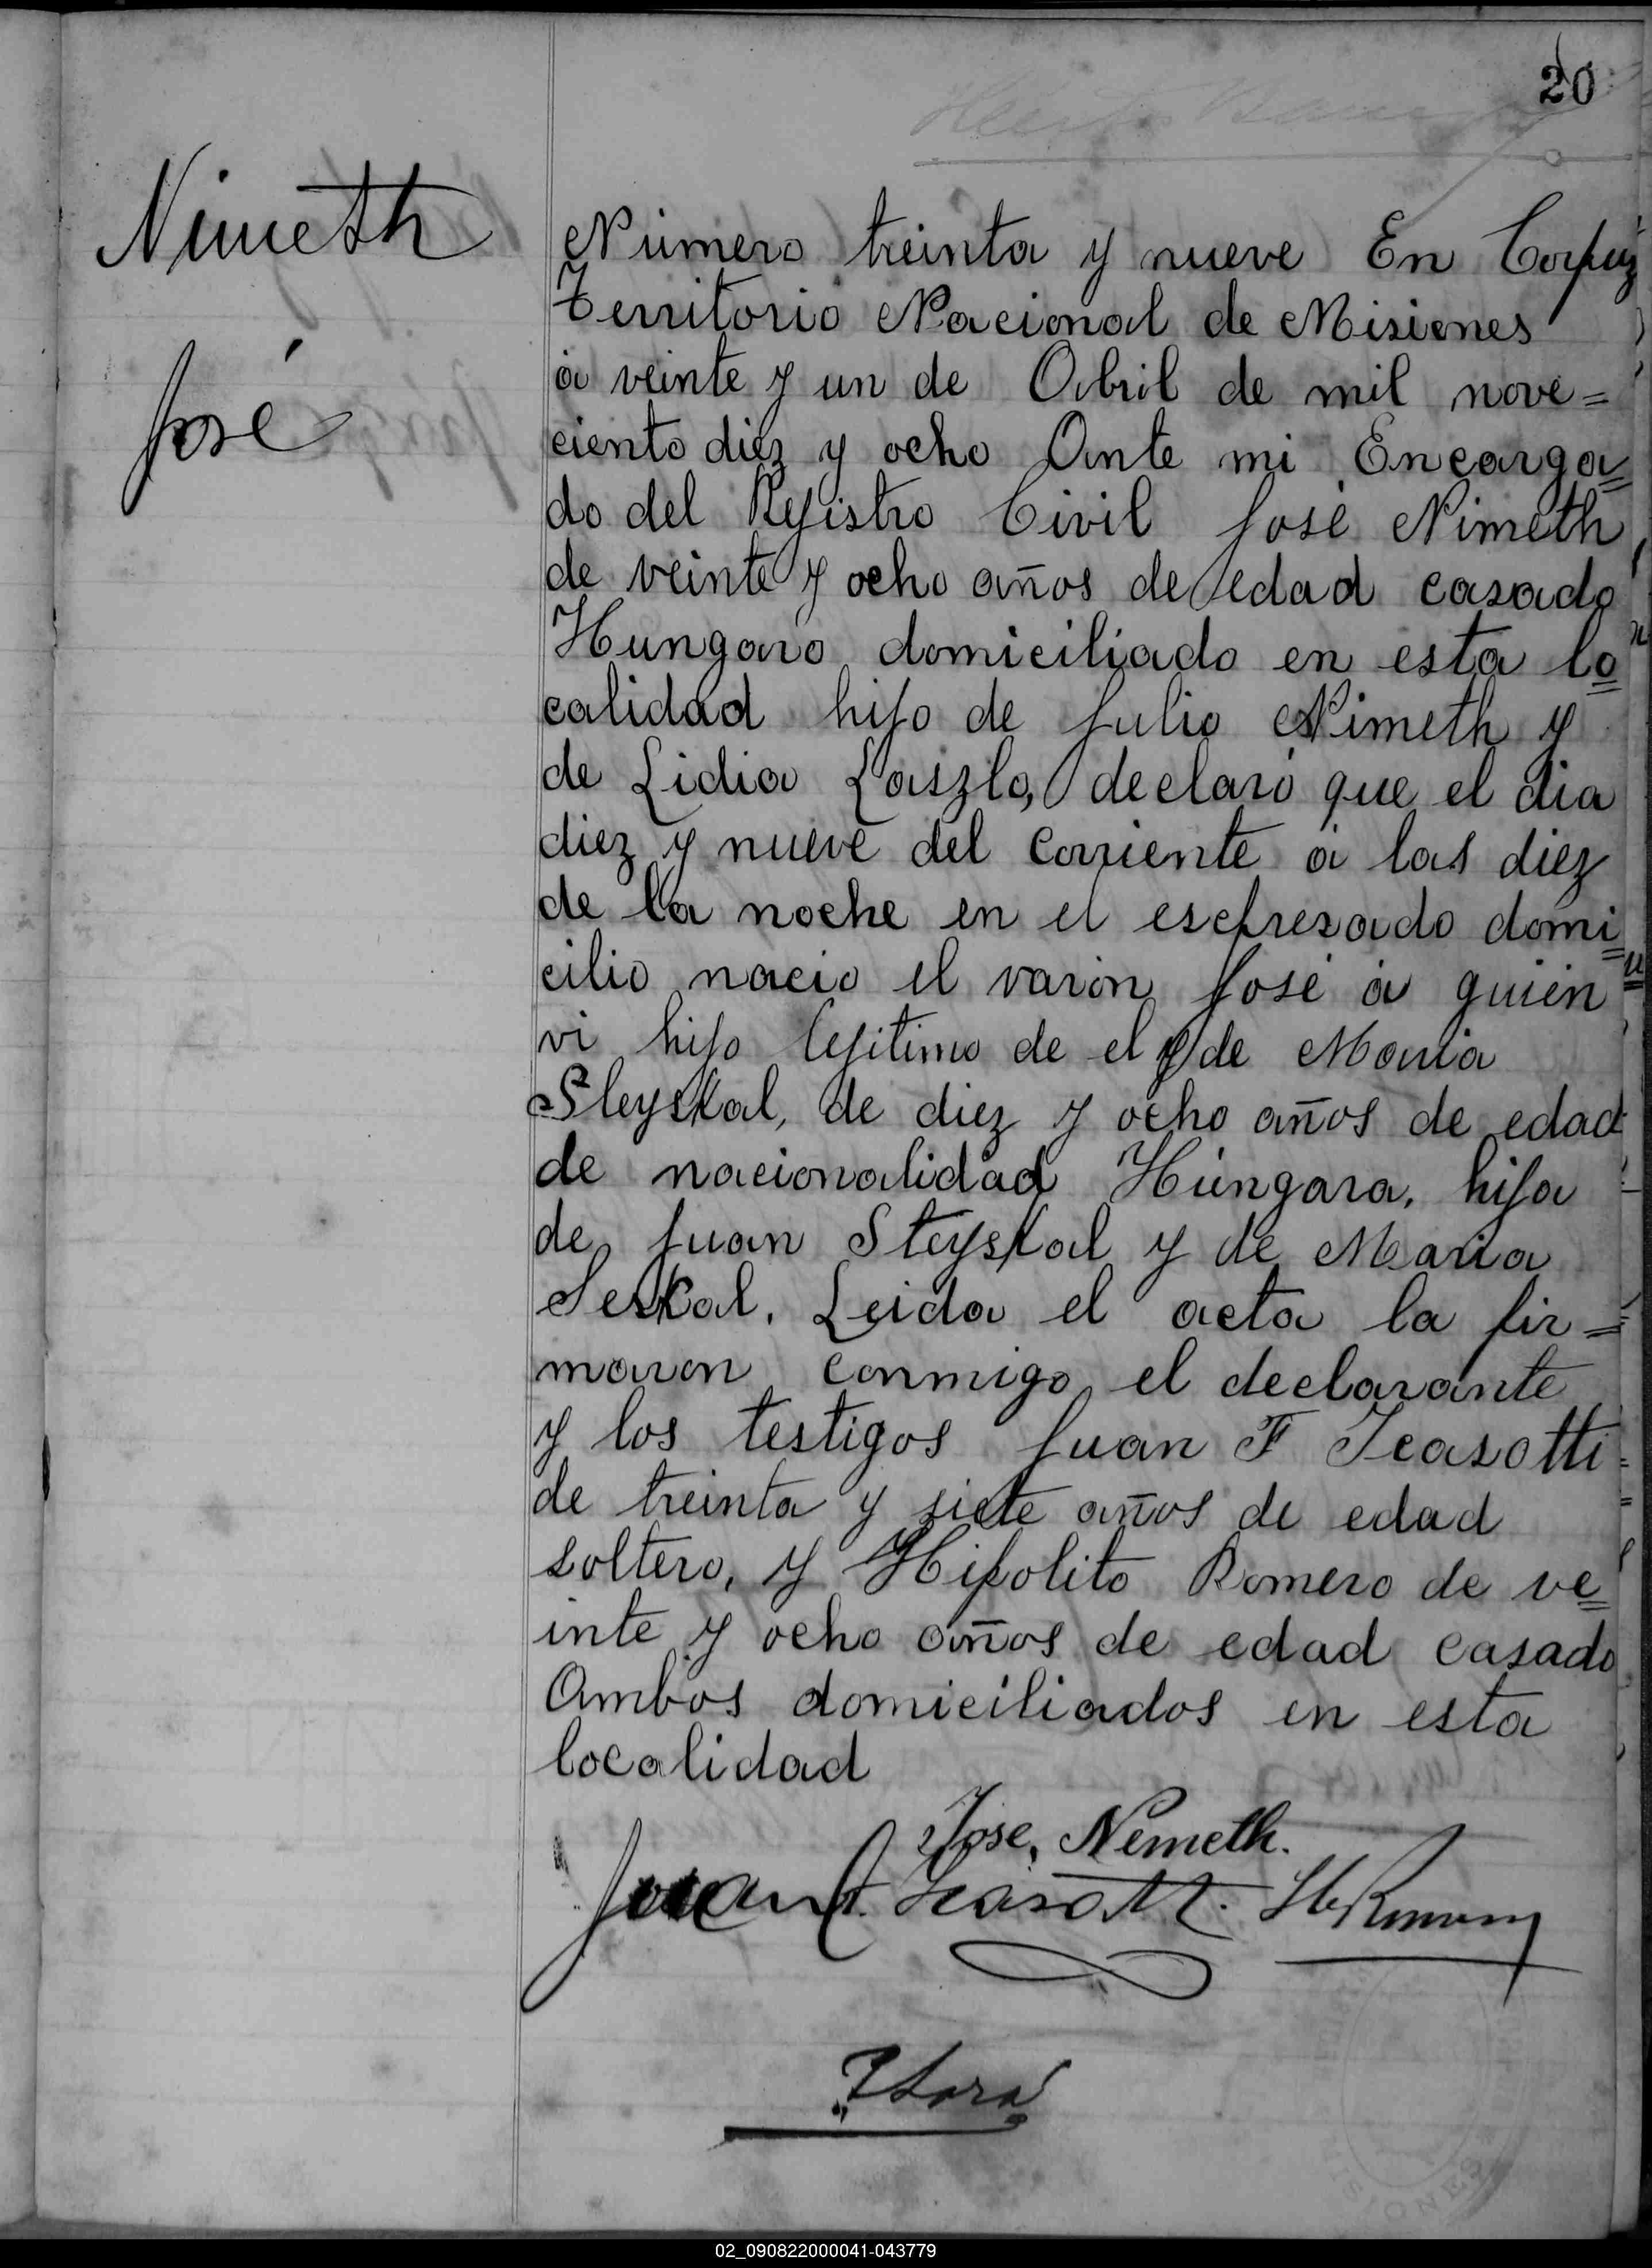 20
Nimeth
José
Número treinta y nueve En Corpuz
Territorio Nacional de Misiones
á veinte y un de Abril de mil nove=
ciento diez y ocho Ante mi Encarga=
do del Rejistro Civil José Nimeth
de veinte y ocho años de edad casado
Hungaro domiciliado en esta lo=
calidad hijo de Julio Nimeth y
de Lidia Laszlo, declaró que el dia
diez y nueve del corriente á las diez
de la noche en el escpresado domi=
cilio nació el varón José á quien
vi hijo lejitimo de el y de Maria
Sleyskal, de diez y ocho años de edad
de nacionalidad Húngara, hija
de Juan Steyskal y de Maria
Serkal. Leida el acta la fir=
maron conmigo el declarante
y los testigos Juan F Icasotti
de treinta y siete años de edad
soltero, y Hipolito Romero de ve=
inte y ocho años de edad casado
Ambos domiciliados en esta
localidad
Jose, Németh.
Juan F. Icasotti. H Romero
02_090822000041-043779